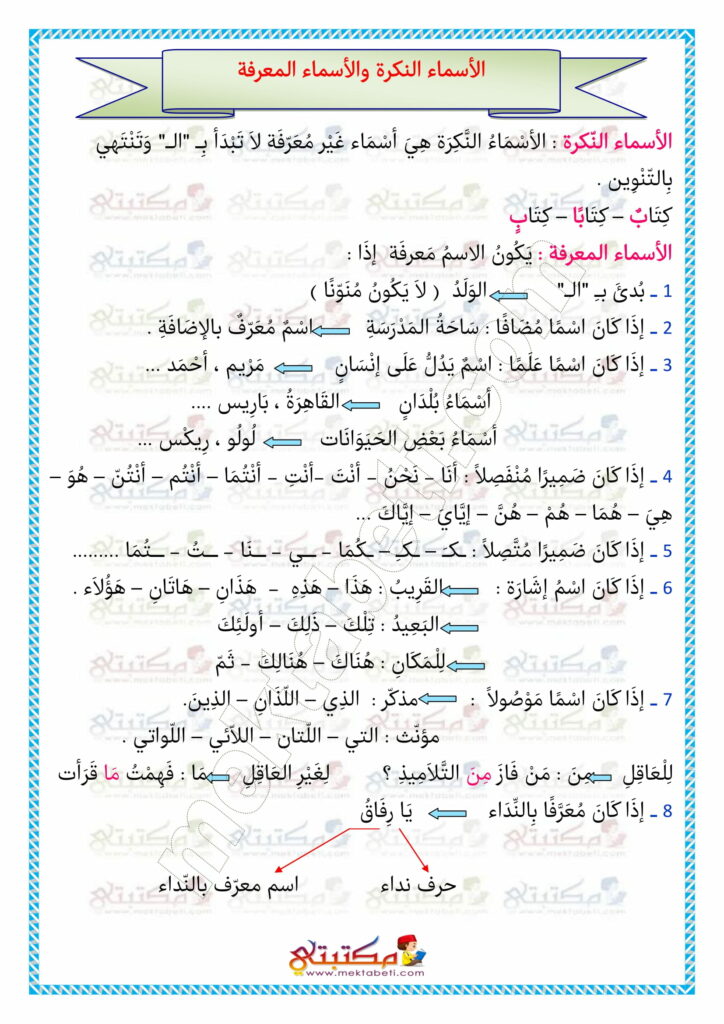 الأسماء النكرة والأسماء المعرفة
الأسماء النّكرة : الأسْمَاءُ النَّكِرَة هِيَ أسْمَاء غَيْر مُعَرّفَة لاَ تَبْدَأ بِـ "الـ" وَتَنْتَهي
بِالتّنْوِين .
كِتَابٌ – كِتَابًا – كِتَابٍ
الأسماء المعرفة : يَكُونُ الاسمُ مَعرفَة إذَا :
1 ـ بُدئَ بـِ "الـ" الوَلَدُ ( لاَ يَكُونُ مُنَوّنًا )
2 ـ إذَا كَانَ اسْمًا مُضَافًا : سَاحَةُ المَدْرَسَةِ اسْمٌ مُعَرّفٌ بالإضَافَةِ .
3 ـ إذَا كَانَ اسْمًا عَلَمًا : اسْمٌ يَدُلُّ عَلَى إنْسَانٍ مَرْيم ، أحْمَد ...
أسْمَاءُ بُلْدَانٍ القَاهِرَةُ ، بَارِيس ....
أسْمَاءُ بَعْضِ الحَيَوَانَات لُولُو ، رِيكْس ...
4 ـ إذَا كَانَ ضَمِيرًا مُنْفَصِلاً : أنَا – نَحْنُ – أنْتَ –أنْتِ – أنْتُمَا – أنْتُم – أنْتُنّ – هُوَ –
هِيَ – هُمَا – هُمْ – هُنَّ – إيَّايَ – إيَّاكَ ...
5 ـ إذَا كَانَ ضَمِيرًا مُتَّصِلاً : ـكَ – ـكِ – ـكُمَا – ـي – ـنَا – ـتُ – ـتُمَا .........
6 ـ إذَا كَانَ اسْمُ إشَارَة : القَرِيبُ : هَذَا – هَذِهِ – هَذَانِ – هَاتَانِ – هَؤُلاَء .
البَعِيدُ : تِلْكَ – ذَلِكَ – أولَئِكَ
لِلْمَكَانِ : هُنَاكَ – هُنَالِكَ – ثَمّ
7 ـ إذَا كَانَ اسْمًا مَوْصُولاً : مذكّر : الذِي – اللّذَانِ – الذِينَ.
مؤنّث : التي – اللّتان – اللاّئي – اللّواتي .
لِلْعَاقِلِ مِنَ : مَنْ فَازَ مِنَ التَّلاَمِيذِ ؟ لِغَيْرِ العَاقِلِ مَا : فَهِمْتُ مَا قَرَأت
8 ـ إذَا كَانَ مُعَرَّفًا بِالنِّدَاء يَا رِفَاقُ
حرف نداء اسم معرّف بالنّداء
مكتبتي
www.mektabeti.com